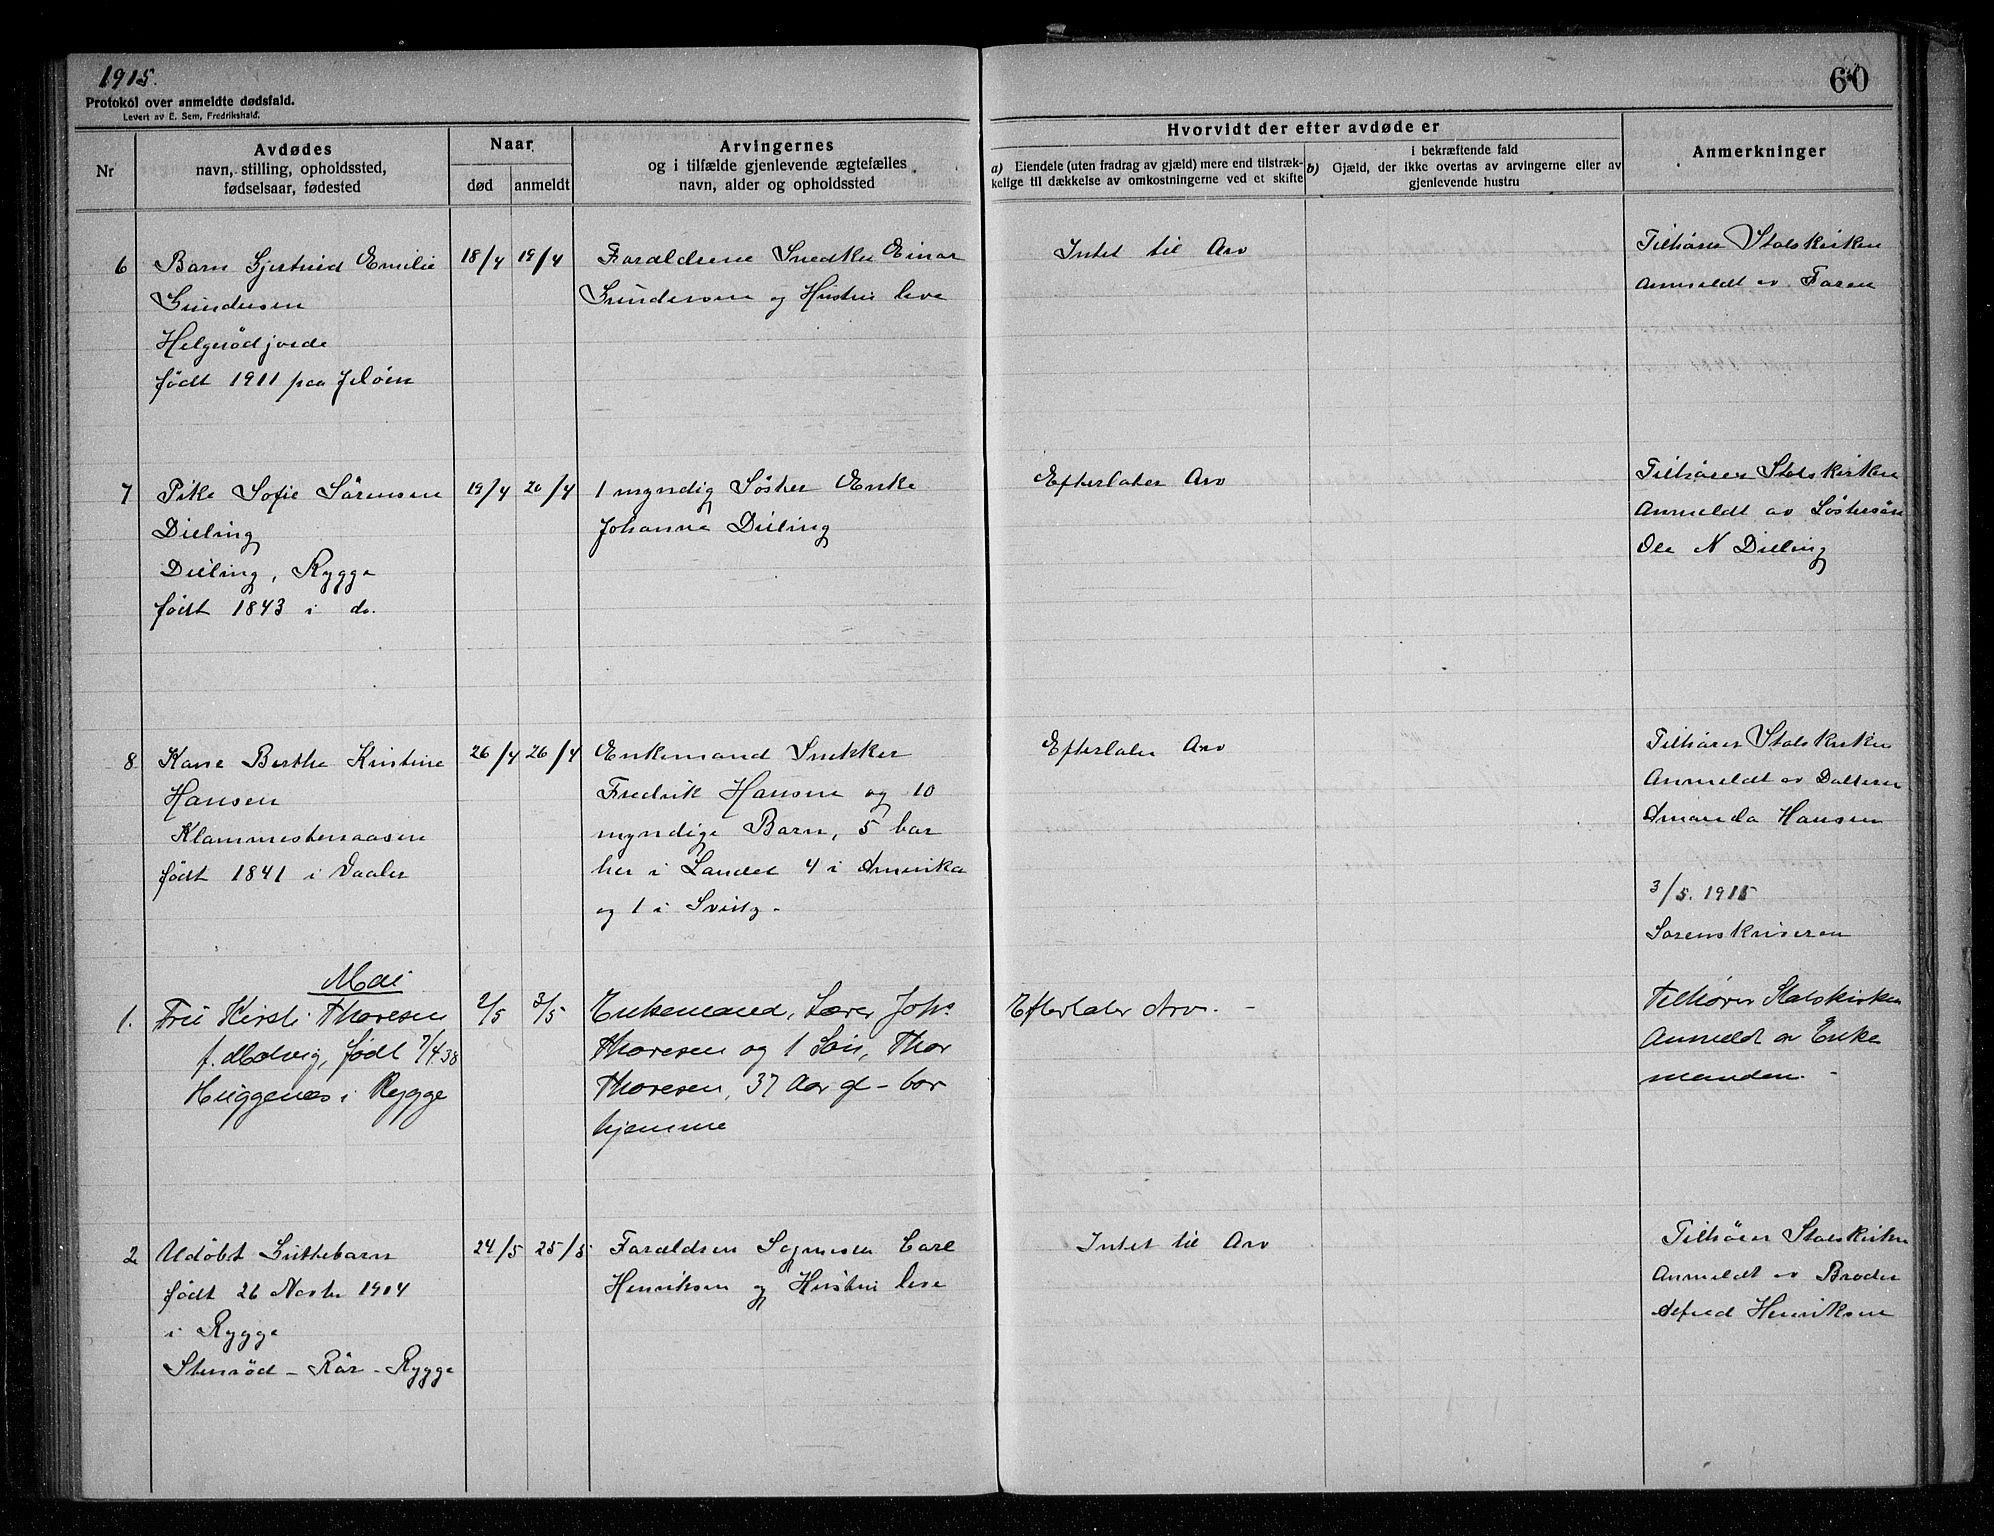 1915.
Protokol over anmeldte dødsfald.
Levert av E. Sem, Fredrikshald.
60
Nr
Avdødes
navn, stilling, opholdssted,
fødselsaar, fødested
Naar
død
anmeldt
Arvingernes
og i tilfælde gjenlevende ægtefælles
navn, alder og opholdssted
Hvorvidt der efter avdøde er
a) Eiendele (uten fradrag av gjæld) mere end tilstræk-
kelige til dækkelse av omkostningerne ved et skifte
i bekræftende fald
b) Gjæld, der ikke overtas av arvingerne eller av
gjenlevende hustru
Anmerkninger
6
Barn Gjertrud Emilie
Gundersen
Helgerødjorde
født 1911 paa Jeløen
18/4
19/4
Forældrene Snedker Einar
Gundersen og Hustru leve
Intet til Arv
Tilhører Statskirken
Anmeldt av Faren
7
Pike Sofie Sørensen
Dilling
Dilling, Rygge
født 1843 i do.
19/4
20/4
1 myndig Søster Enke
Johanne Dilling
Efterlater Arv
Tilhører Statskirken
Anmeldt av Søstersøn
Ole N Dilling
8
Kone Berthe Kristine
Hansen
Klommestenaasen
født 1841 i Vaaler
26/4
26/4
Enkemand Snekker
Fredrik Hansen og 10
myndige Barn, 5 bor
her i Landet 4 i Amerika
og 1 i Sveits.
Efterlater Arv
Tilhører Statskirken
Anmeldt av Datteren
Amanda Hansen
3/5. 1915
Sorenskriveren
Mai
1.
Fru Kirsti Thoresen
f. Molvig, født 7/4 38
Huggenes i Rygge
2/5
3/5
Enkemand, Lærer Johs
Thoresen og 1 Søn, Thor
Thoresen, 37 Aar gl - bor
hjemme
Efterlater Arv. -
Tilhører Statskirken
Anmeldt av Enke
manden. -
2
Udøbt Guttebarn
født 26 Novbr 1914
i Rygge
Stenrød - Rør - Rygge
24/5
25/5
Forældren Sagmester Carl
Henriksen og Hustru leve
Intet til Arv
Tilhører Statskirken
Anmeldt av Broder
Alfred Henriksen